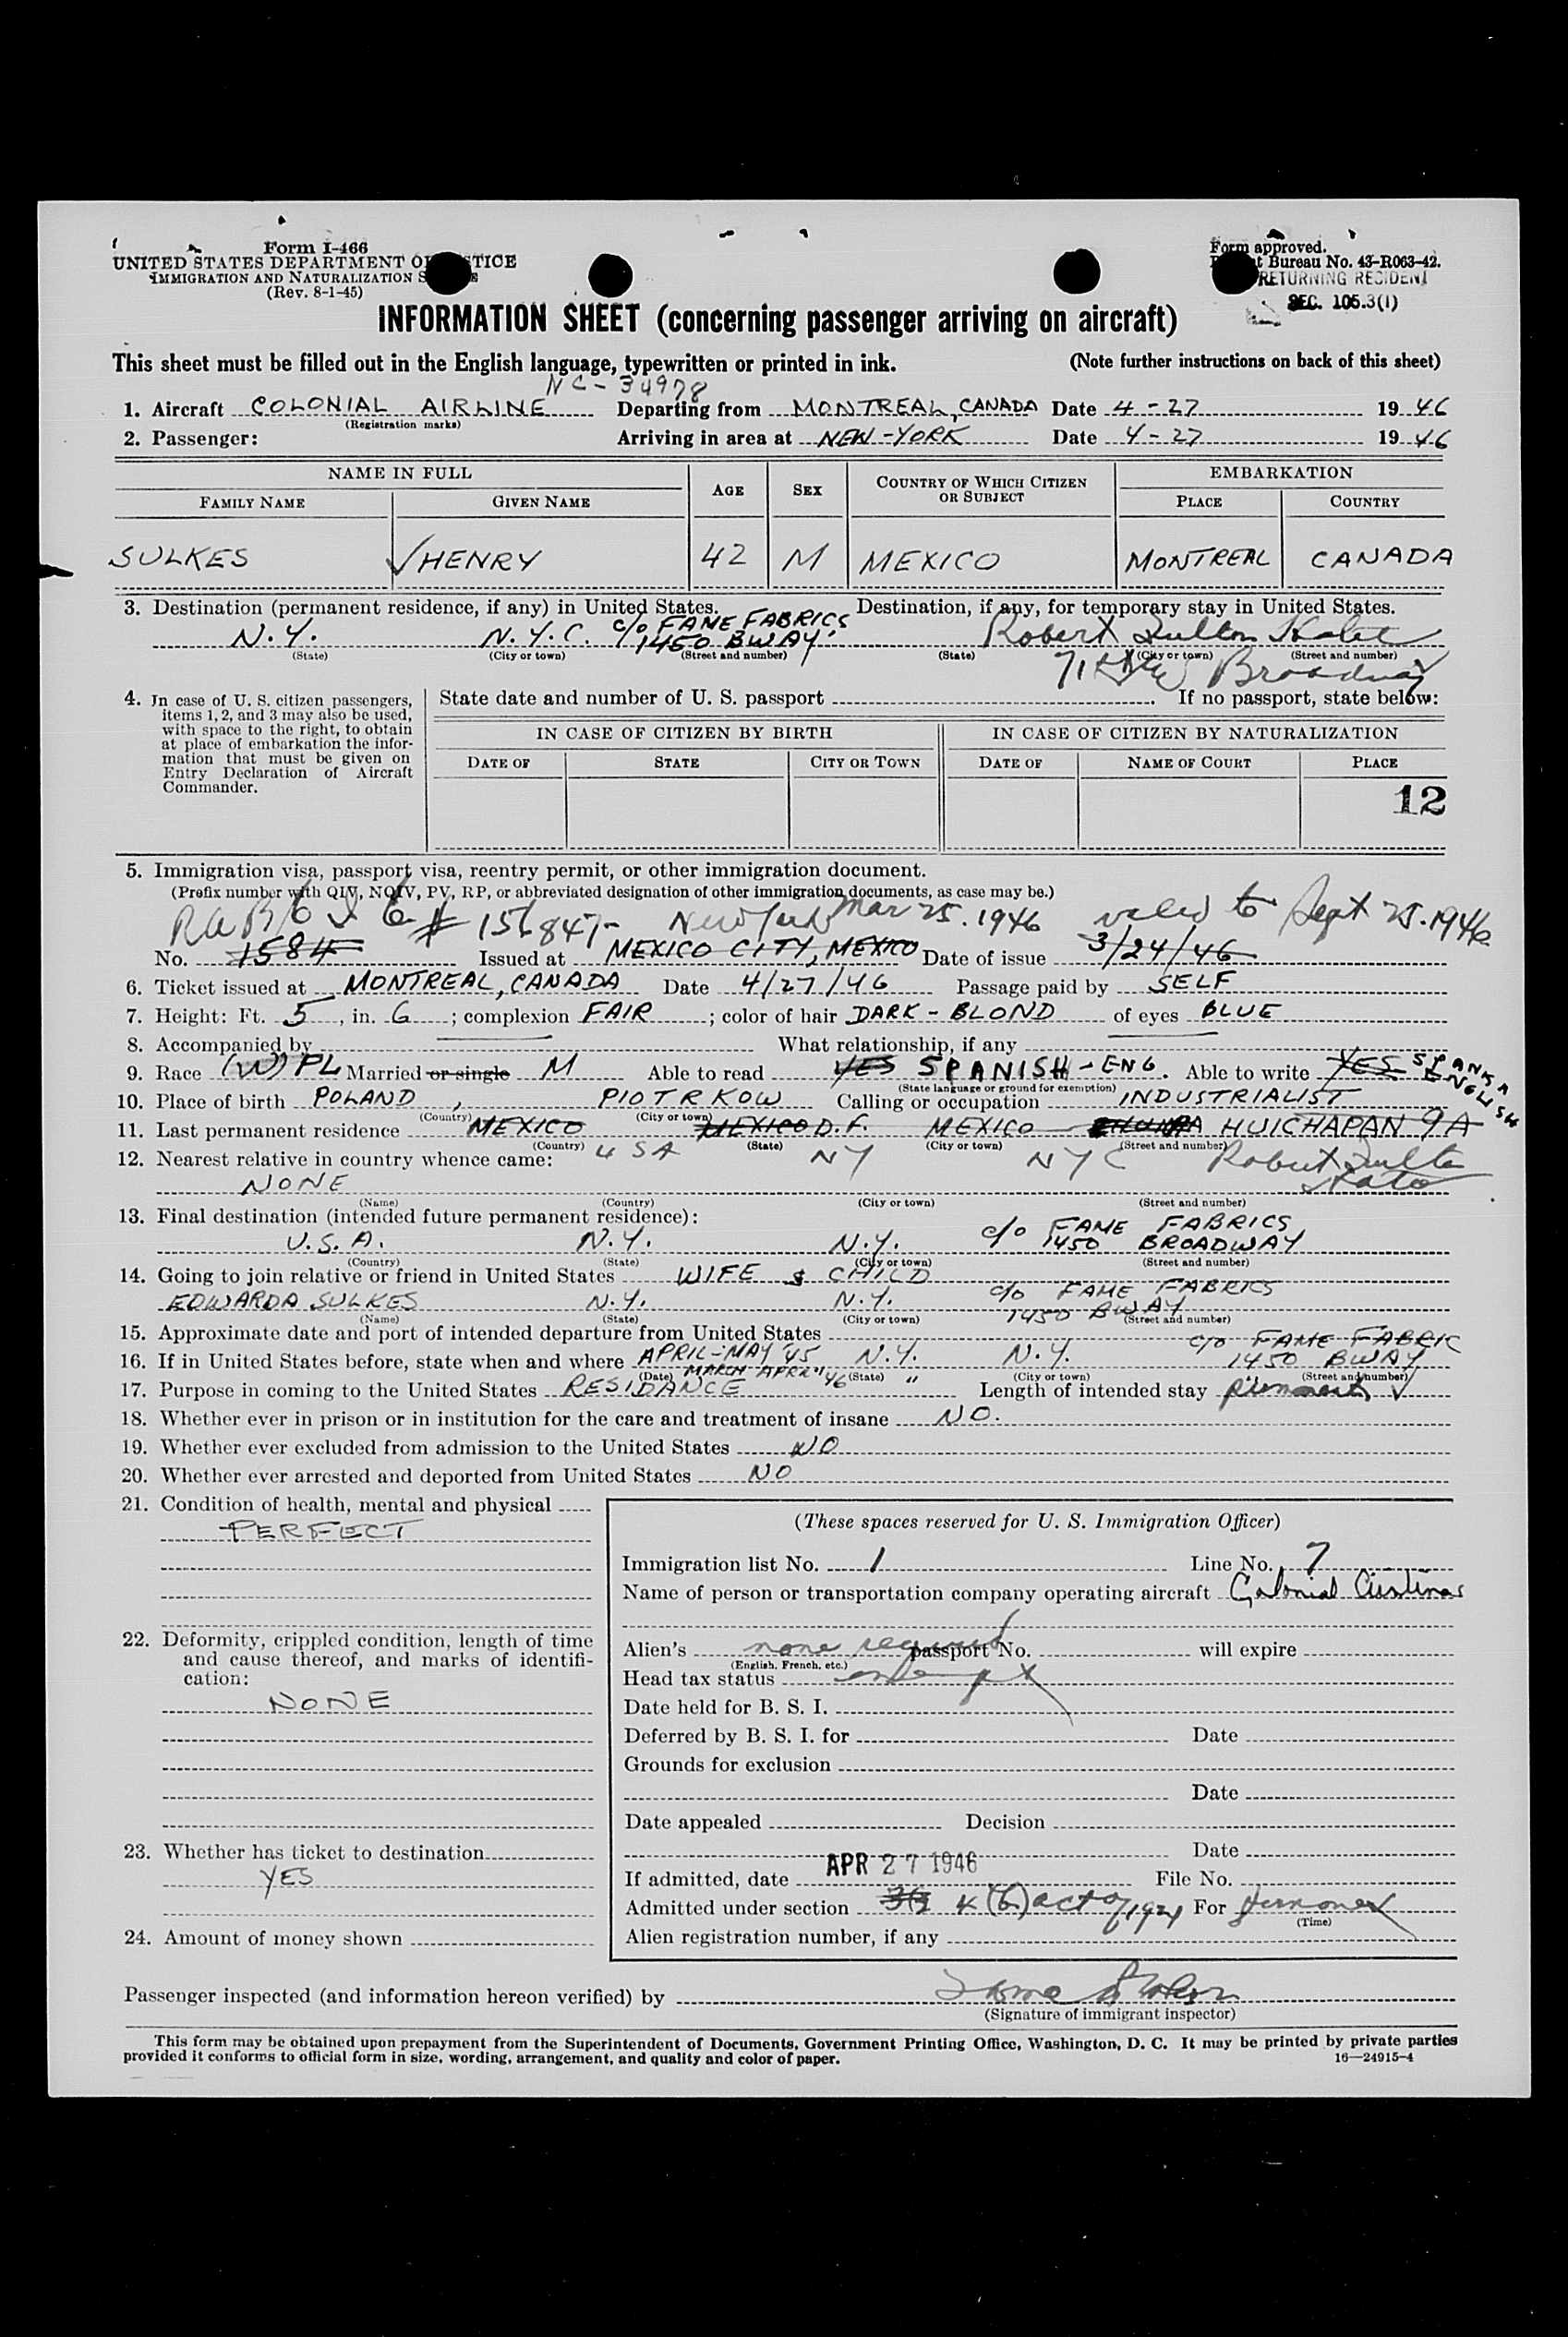 Form I-466
UNITED STATES DEPARTMENT OF JUSTICE
IMMIGRATION AND NATURALIZATION S
(Rev. 8-1-45)
Form approved.
t Bureau No. 43-R063-42.
RETURNING RESIDENT
SEC. 105.3(1)
INFORMATION SHEET (concerning passenger arriving on aircraft)
This sheet must be filled out in the English language, typewritten or printed in ink. (Note further instructions on back of this sheet)
NC-34978
1. Aircraft COLONIAL AIRLINE Departing from MONTREAL, CANADA Date 4-27 1946
(Registration marks)
2. Passenger: Arriving in area at NEW-YORK Date 4-27 1946
NAME IN FULL AGE SEX COUNTRY OF WHICH CITIZEN OR SUBJECT EMBARKATION
FAMILY NAME GIVEN NAME PLACE COUNTRY
SULKES HENRY 42 M MEXICO MONTREAL CANADA
3. Destination (permanent residence, if any) in United States. Destination, if any, for temporary stay in United States.
N.Y. N.Y.C. c/o FAME FABRICS 1450 BWAY Robert Fulton Hotel
(State) (City or town) (Street and number) (State) (City or town) (Street and number)
71 Broadway
4. In case of U. S. citizen passengers, items 1, 2, and 3 may also be used, with space to the right, to obtain at place of embarkation the information that must be given on Entry Declaration of Aircraft Commander.
State date and number of U. S. passport If no passport, state below:
IN CASE OF CITIZEN BY BIRTH IN CASE OF CITIZEN BY NATURALIZATION
DATE OF STATE CITY OR TOWN DATE OF NAME OF COURT PLACE
12
5. Immigration visa, passport visa, reentry permit, or other immigration document.
(Prefix number with QIV, NQIV, PV, RP, or abbreviated designation of other immigration documents, as case may be.)
# 156847- New York Mar 25. 1946 valid to Sept 25. 1946
No. 1584 Issued at MEXICO CITY, MEXICO Date of issue 3/24/46
6. Ticket issued at MONTREAL, CANADA Date 4/27/46 Passage paid by SELF
7. Height: Ft. 5, in. 6; complexion FAIR; color of hair DARK-BLOND of eyes BLUE
8. Accompanied by What relationship, if any
9. Race (W) PL Married or single M Able to read YES SPANISH-ENG. Able to write YES SPANISH ENGLISH
(State language or ground for exemption)
10. Place of birth POLAND, PIOTRKOW Calling or occupation INDUSTRIALIST
(Country) (City or town)
11. Last permanent residence MEXICO MEXICO D.F. MEXICO HUICHAPAN 9A
(Country) (State) (City or town) (Street and number)
12. Nearest relative in country whence came: USA NY NYC Robert Fulton
NONE
(Name) (Country) (City or town) (Street and number)
13. Final destination (intended future permanent residence):
U.S.A. N.Y. N.Y. c/o FAME FABRICS 1450 BROADWAY
(Country) (State) (City or town) (Street and number)
14. Going to join relative or friend in United States WIFE & CHILD
EDWARDA SULKES N.Y. N.Y. c/o FAME FABRICS 1450 BWAY
(Name) (State) (City or town) (Street and number)
15. Approximate date and port of intended departure from United States
16. If in United States before, state when and where APRIL-MAY '45 N.Y. N.Y. c/o FAME FABRIC 1450 BWAY
(Date) MARCH APRIL '46 (State) " (City or town) (Street and number)
17. Purpose in coming to the United States RESIDANCE Length of intended stay permanent
18. Whether ever in prison or in institution for the care and treatment of insane NO.
19. Whether ever excluded from admission to the United States NO
20. Whether ever arrested and deported from United States NO
21. Condition of health, mental and physical
PERFECT
22. Deformity, crippled condition, length of time and cause thereof, and marks of identification:
NONE
23. Whether has ticket to destination
YES
24. Amount of money shown
(These spaces reserved for U. S. Immigration Officer)
Immigration list No. 1 Line No. 7
Name of person or transportation company operating aircraft Colonial Airlines
Alien's none required passport No. will expire
(English, French, etc.)
Head tax status exempt
Date held for B. S. I.
Deferred by B. S. I. for Date
Grounds for exclusion
Date
Date appealed Decision
Date
If admitted, date APR 27 1946 File No.
Admitted under section 4(b) act of 1924 For permanent
(Time)
Alien registration number, if any
Passenger inspected (and information hereon verified) by
(Signature of immigrant inspector)
This form may be obtained upon prepayment from the Superintendent of Documents, Government Printing Office, Washington, D. C. It may be printed by private parties
provided it conforms to official form in size, wording, arrangement, and quality and color of paper. 16—24915-4